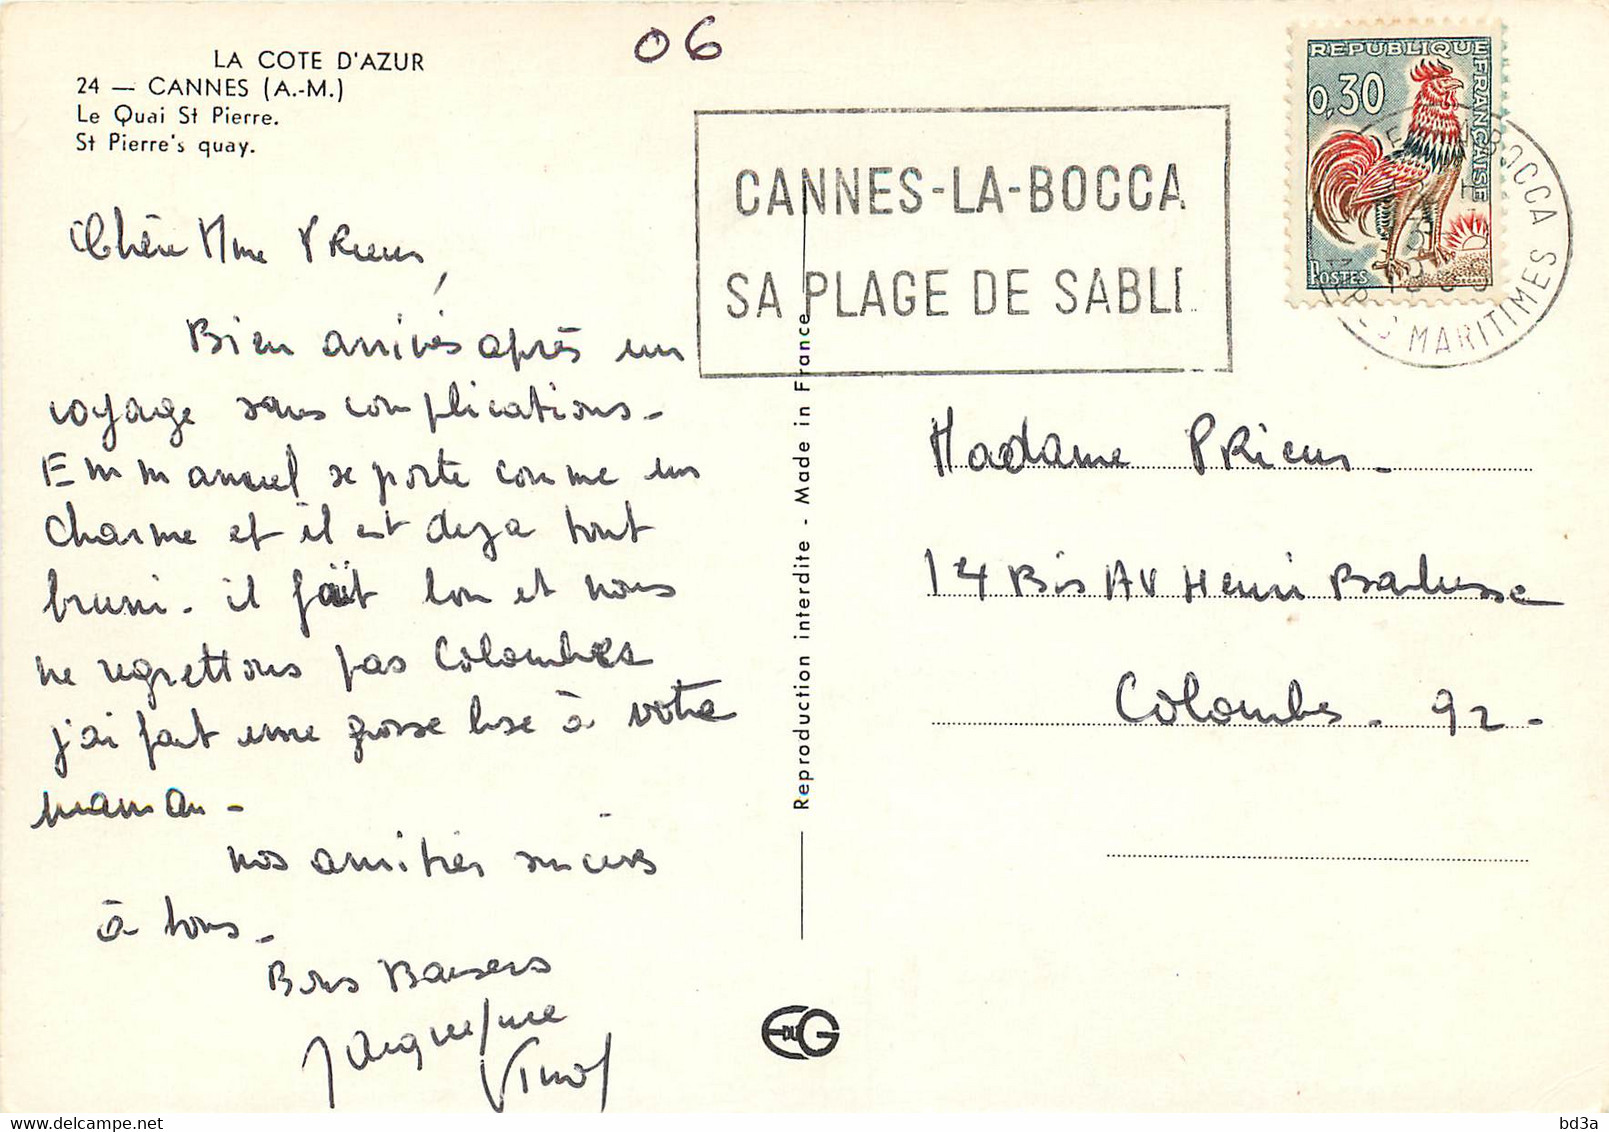 LA COTE D'AZUR
24 — CANNES (A.-M.)
Le Quai St Pierre.
St Pierre's quay.
06
Chère Mme PRieur,
Bien arrivés après un
voyage sans complications-
Emmanuel se porte comme un
charme et il est deja tout
bruni- il fait bon et nous
ne regrettons pas Colombes
j'ai fait une grosse bise à votre
maman-
nos amitiés sincères
à tous-
Bons Baisers
Jacqueline
CANNES-LA-BOCCA
SA PLAGE DE SABL
REPUBLIQUE FRANÇAISE
0,30
POSTES
BOCCA
MARITIMES
Madame PRieur-
14 Bis AV Henri Barbusse
Colombes- 92-
Reproduction interdite - Made in France
EDUG
bd3a